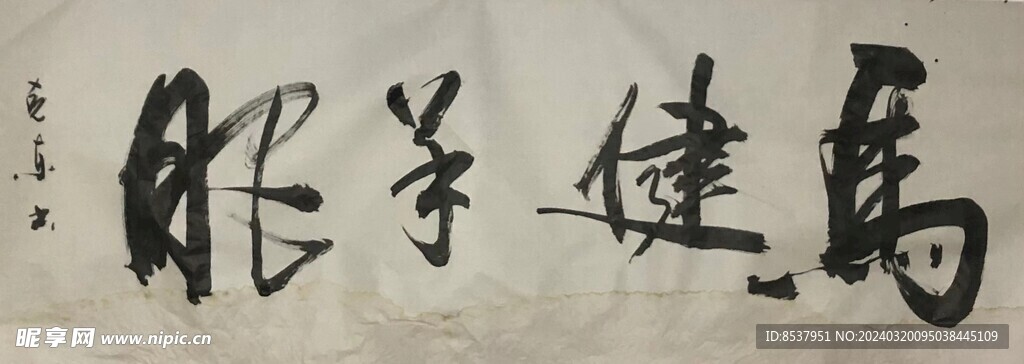 馬健羊肥
克东书
昵享网 www.nipic.cn
ID:8537951 NO:20240320095038445109